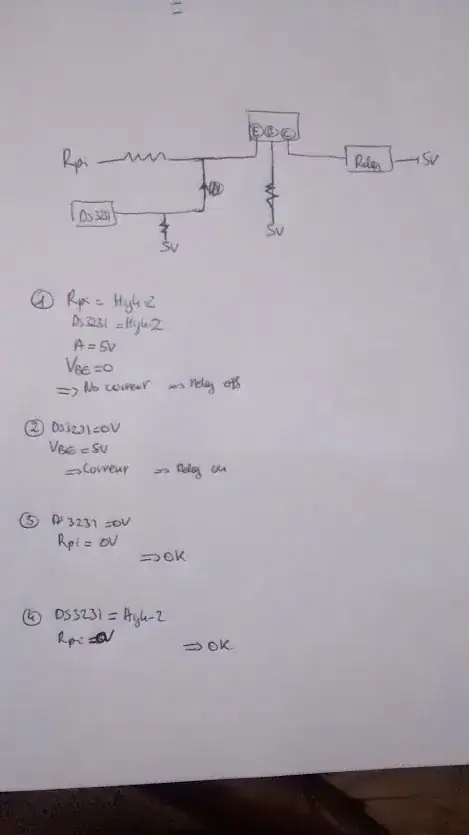 E B C
Rpi
Relay
5V
DS3231
5V
5V
① Rpi = High-Z
DS3231 = High-Z
A = 5V
VBE = 0
=> No courrent => Relay off
② DS3231=0V
VBE = 5V
=> Courrent => Relay on
③ DS3231 = 0V
Rpi = 0V
=> OK
④ DS3231 = High-Z
Rpi = 0V
=> OK.